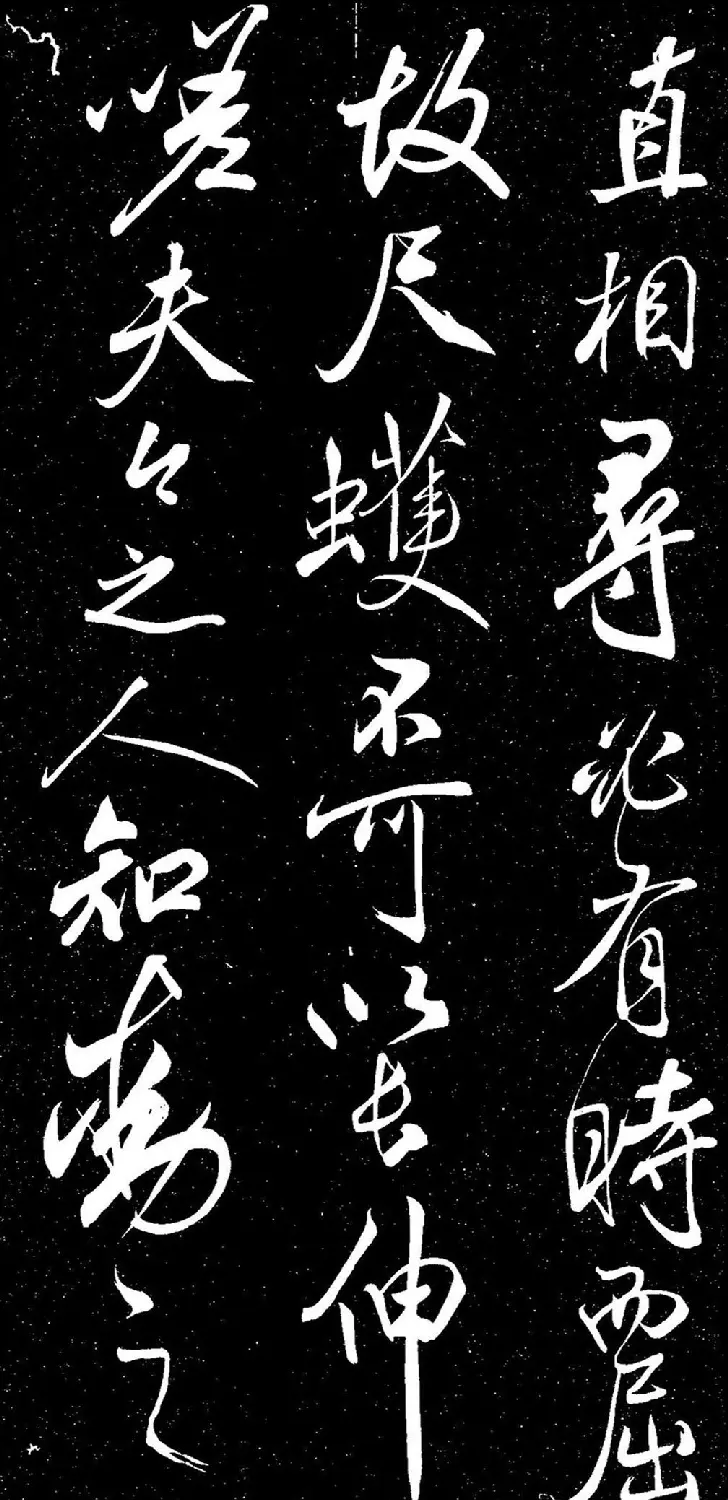 直相尋必有時而屈
故尺蠖不可以長伸
嗟夫今之人知動之